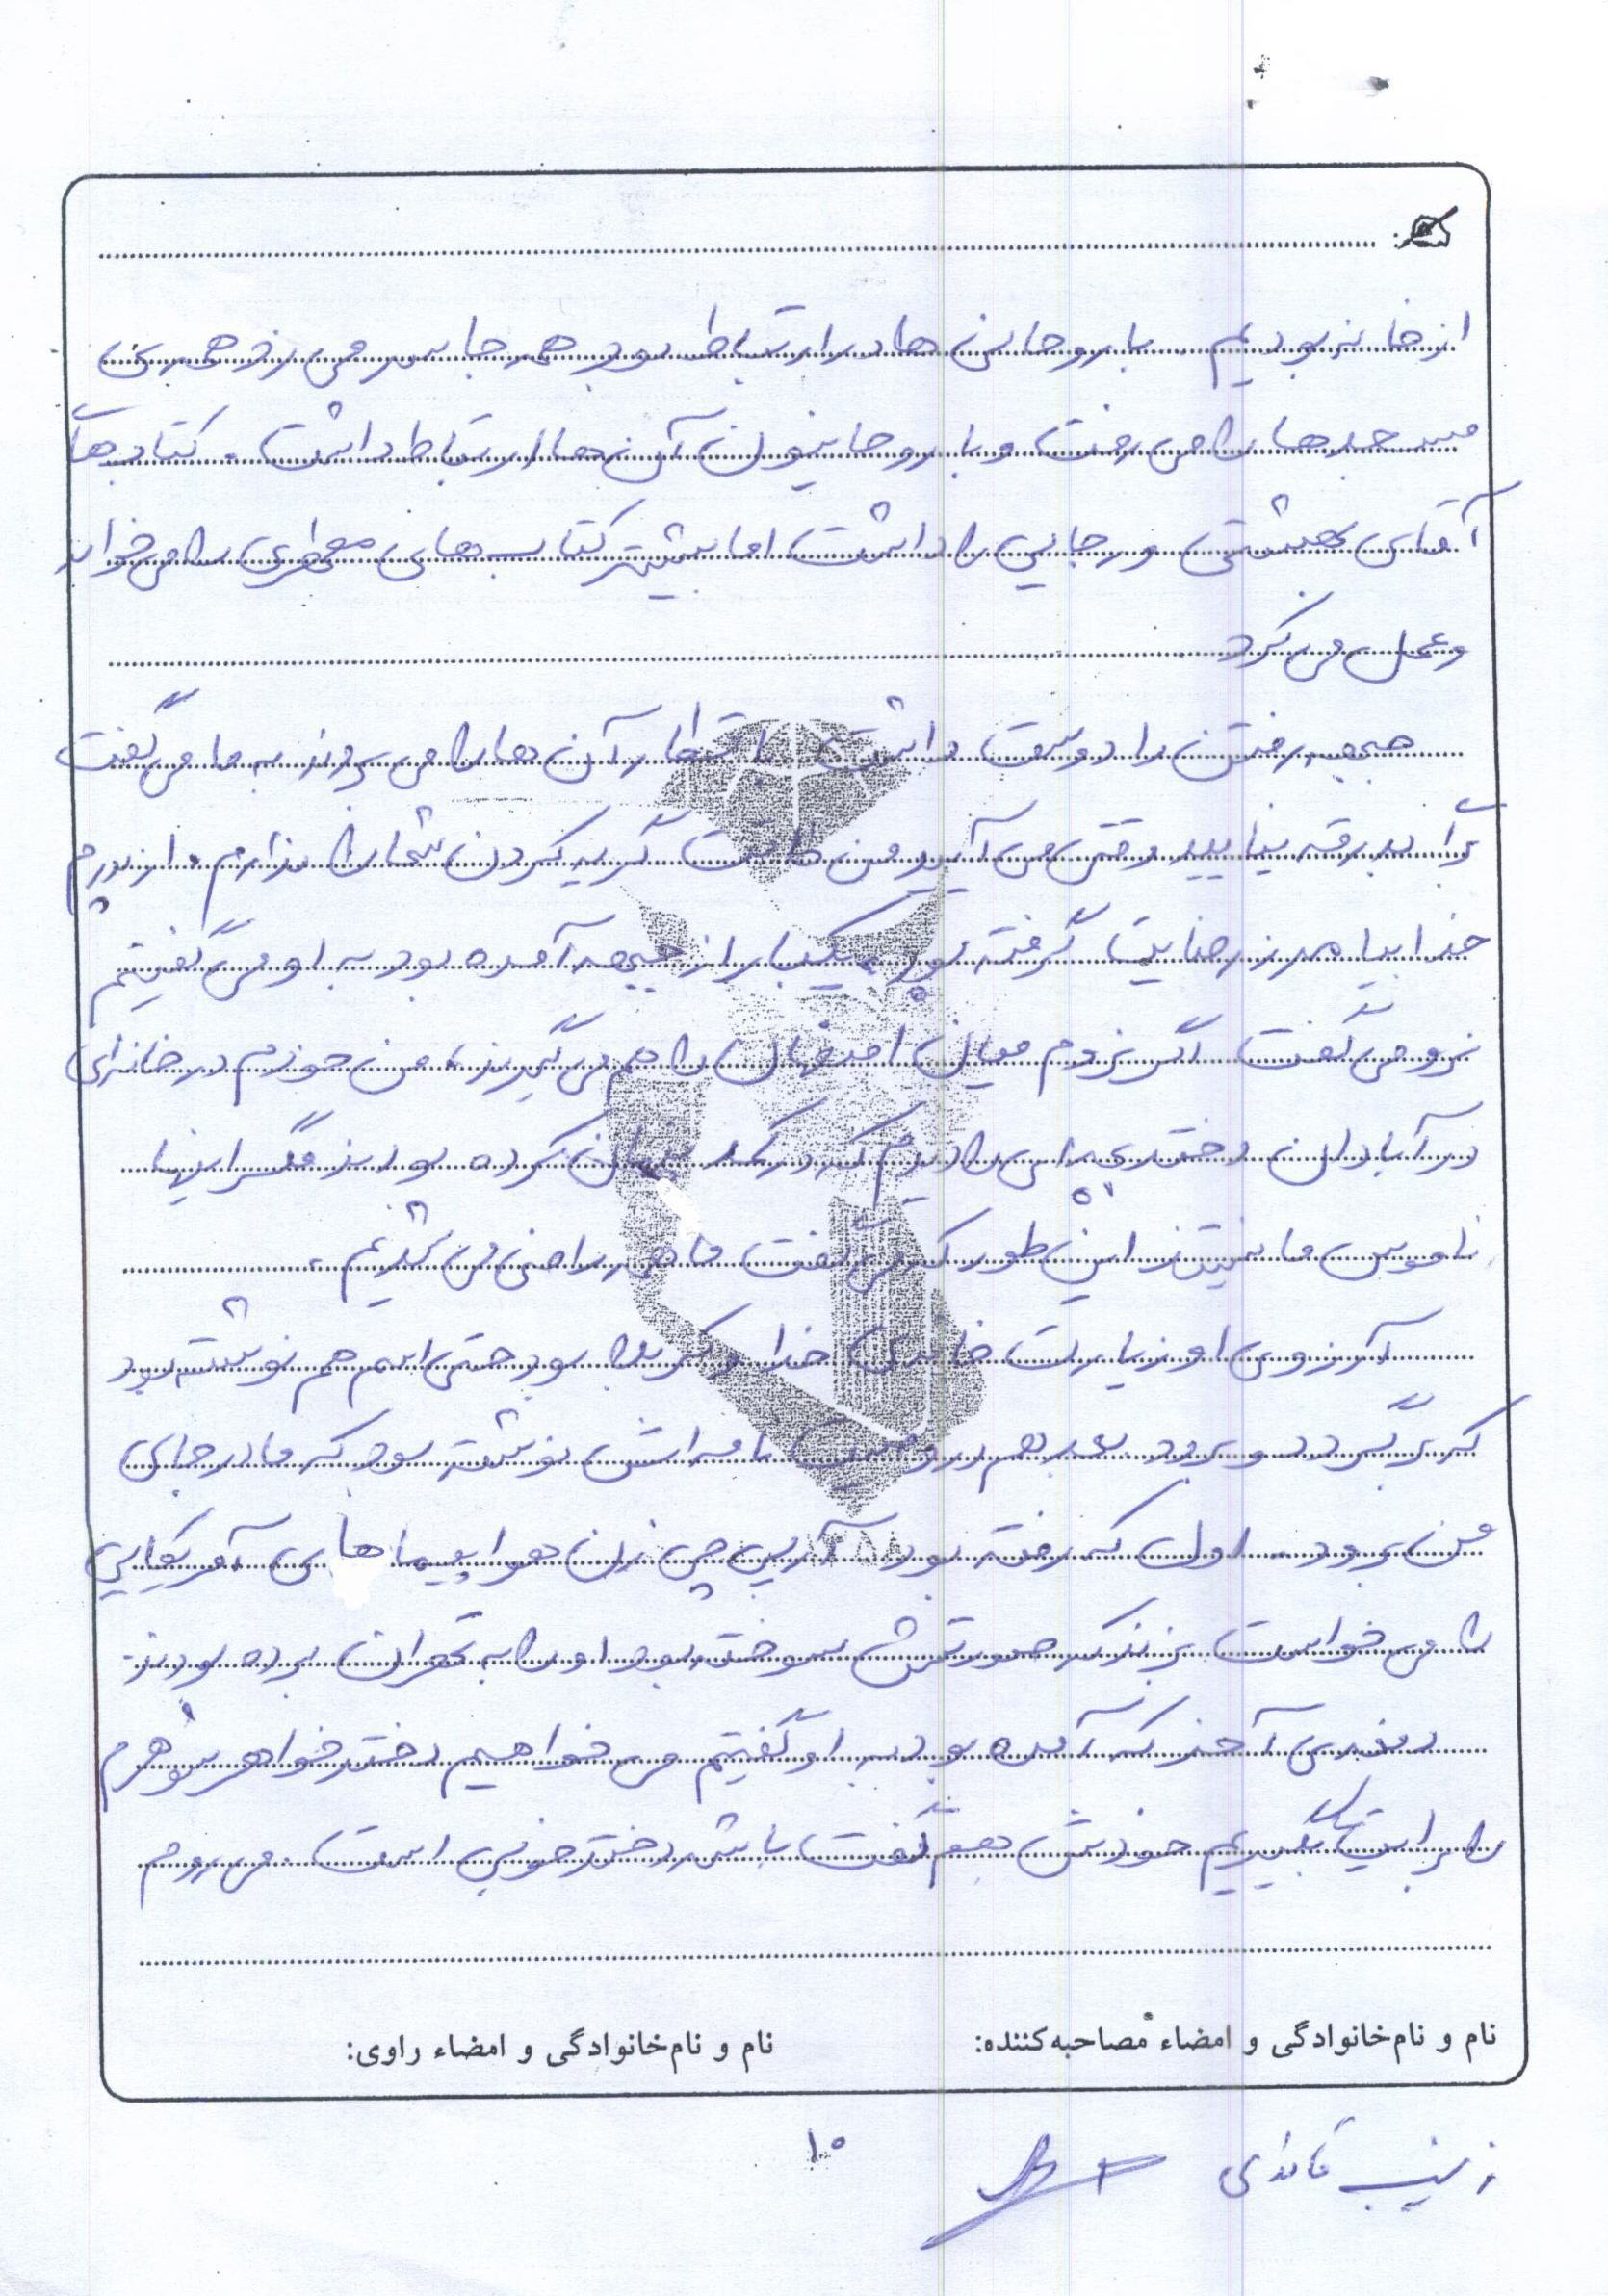 از خانه بودیم. با روحانی ها در ارتباط بود همه جا سر می زد همه ی
مسجدها را می رفت و با روحانیون آن ها ارتباط داشت. کتاب های
آقای بهشتی و رجایی را داشت اما بیشتر کتاب های مطهری را می خواند
و عمل می کرد
جبهه رفتن را دوست داشت با قطار آن ها را می بردند به ما می گفت
برا بدرقه نیایید وقتی می آیید من طاقت گریه کردن شما را ندارم. از پدرم
خدابیامرز رضایت گرفته بود یکبار از جبهه آمده بود به او می گفتیم
نرو می گفت اگر نروم میان اصفهان را هم می گیرند، من خودم در خانه ای
در آبادان دختری را دیدم که در کمد پنهان کرده بودند مگر اینها
ناموس ما نیستند این طور که می گفت ما هم راضی می شدیم.
آرزوی او زیارت خانه ی خدا و کربلا بود حتی اسم هم نوشته بود
که برگردد و برود بعد هم در وصیت نامه اش نوشته بود که مادر جای
من برود. اول که رفته بود آرپی جی زن هواپیماهای آمریکایی
را می خواست بزند که صورتش سوخته بود او را به تهران برده بودند.
دفعه ی آخر که آمده بود به او گفتیم می خواهیم دختر خواهر شوهرم
را برایت بگیریم خودش هم گفت باشه دختر خوبی است. می روم
نام و نام‌خانوادگی و امضاء مصاحبه‌کننده: نام و نام‌خانوادگی و امضاء راوی:
زینب قائدی ۱۰